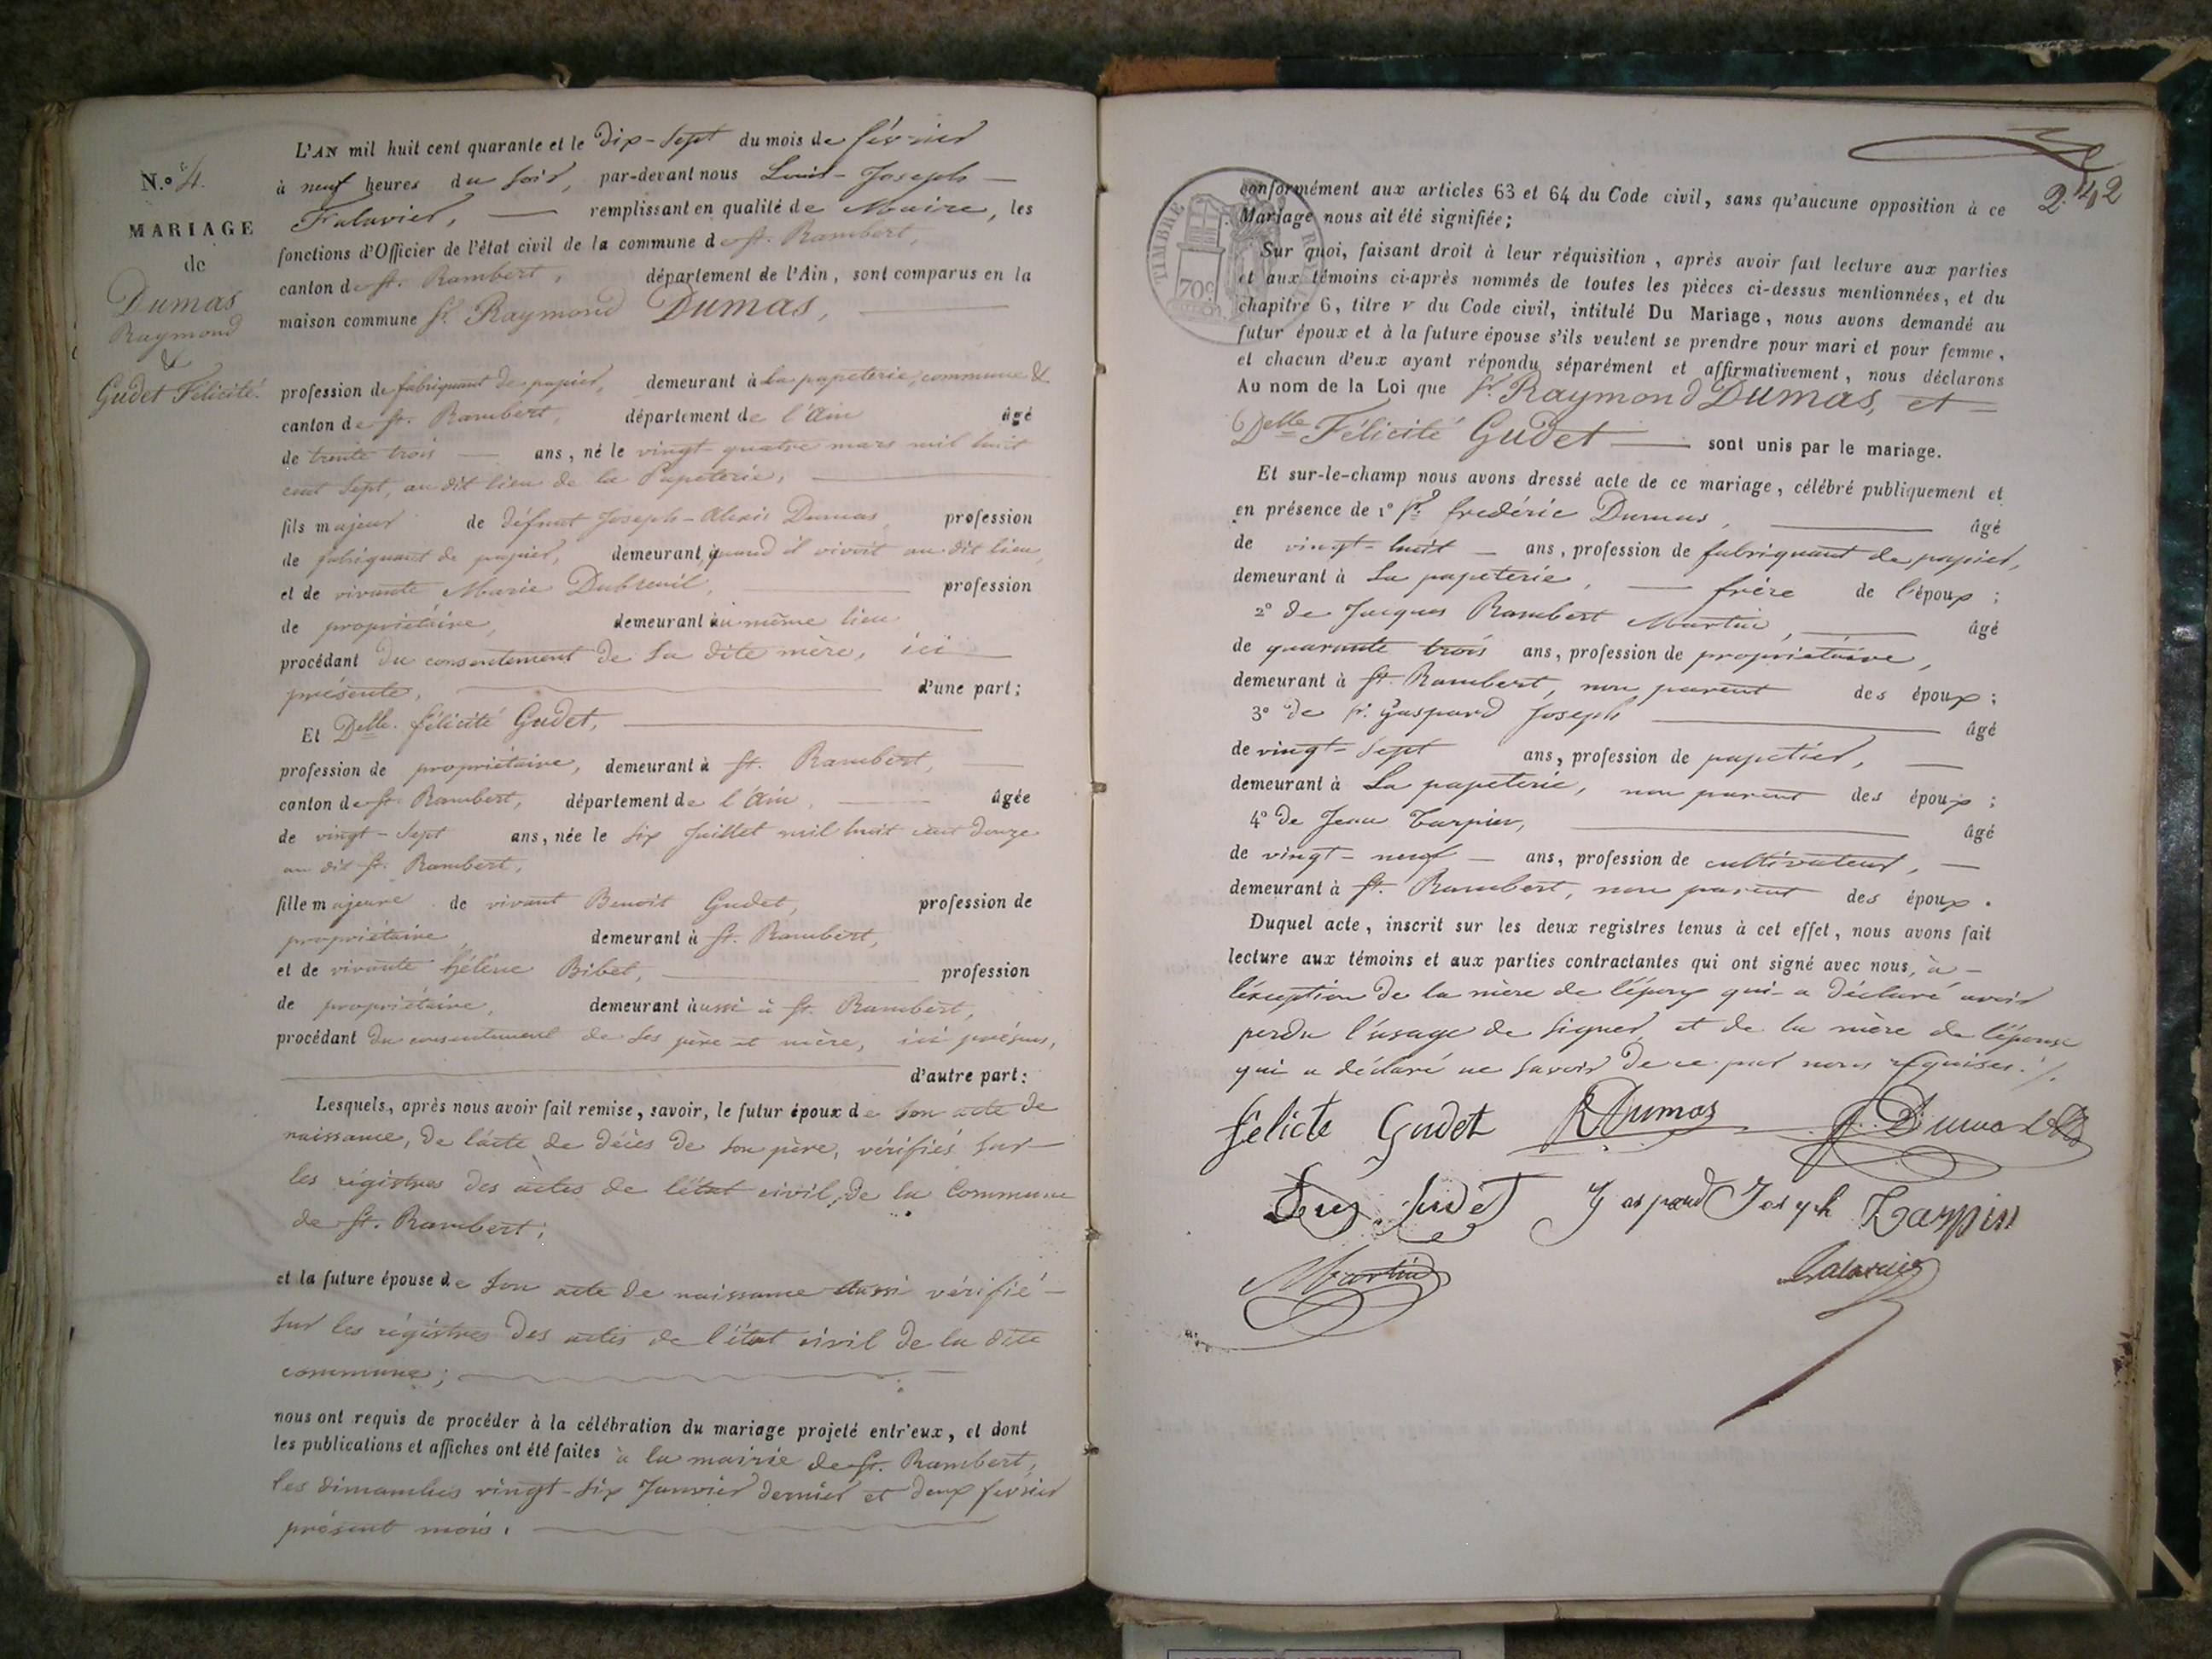 N.º 4.
MARIAGE
de
Dumas
Raymond
&
Gudet Félicité.
L'AN mil huit cent quarante et le dix-sept du mois de février
à neuf heures du soir, par-devant nous Louis-Joseph
Falavier, remplissant en qualité de Maire, les
fonctions d'Officier de l'état civil de la commune de St. Rambert,
canton de St. Rambert, département de l'Ain, sont comparus en la
maison commune Sr. Raymond Dumas,
profession de fabriquant de papier, demeurant à La papeterie, commune &
canton de St. Rambert, département de l'Ain âgé
de trente trois ans, né le vingt quatre mars mil huit
cent sept, au dit lieu de la Papeterie,
fils majeur de défunt Joseph-Alexis Dumas, profession
de fabriquant de papier, demeurant, quand il vivoit au dit lieu,
et de vivante Marie Dubreuil, profession
de propriétaire, demeurant au même lieu
procédant du consentement de sa dite mère, ici
présente, d'une part;
Et Delle. félicité Gudet,
profession de propriétaire, demeurant à St. Rambert,
canton de St. Rambert, département de l'Ain, âgée
de vingt-sept ans, née le six Juillet mil huit cent douze
au dit St. Rambert,
fille majeure de vivant Benoit Gudet, profession de
propriétaire, demeurant à St. Rambert,
et de vivante hélène Bibet, profession
de propriétaire, demeurant aussi à St. Rambert,
procédant du consentement de ses père et mère, ici présens,
d'autre part:
Lesquels, après nous avoir fait remise, savoir, le futur époux de son acte de
naissance, de l'acte de décès de son père, vérifiés sur
les régistres des actes de l'état civil, de la Commune
de St. Rambert;
et la future épouse de son acte de naissance aussi vérifié
sur les régistres des actes de l'état civil de la dite
commune;
nous ont requis de procéder à la célébration du mariage projeté entr'eux, et dont
les publications et affiches ont été faites à la mairie de St. Rambert,
les dimanches vingt-six Janvier dernier et deux février
présent mois.
242
TIMBRE
70c
conformément aux articles 63 et 64 du Code civil, sans qu'aucune opposition à ce
Mariage nous ait été signifiée;
Sur quoi, faisant droit à leur réquisition, après avoir fait lecture aux parties
et aux témoins ci-après nommés de toutes les pièces ci-dessus mentionnées, et du
chapitre 6, titre v du Code civil, intitulé Du Mariage, nous avons demandé au
futur époux et à la future épouse s'ils veulent se prendre pour mari et pour femme,
et chacun d'eux ayant répondu séparément et affirmativement, nous déclarons
Au nom de la Loi que Sr. Raymond Dumas, et
Delle Félicité Gudet sont unis par le mariage.
Et sur-le-champ nous avons dressé acte de ce mariage, célébré publiquement et
en présence de 1º Sr. frédéric Dumas, âgé
de vingt-huit ans, profession de fabriquant de papier,
demeurant à La papeterie, frère de l'époux;
2º de Jacques Rambert Martin, âgé
de quarante trois ans, profession de propriétaire,
demeurant à St. Rambert, non parent des époux;
3º de Sr. Gaspard Joseph âgé
de vingt-sept ans, profession de papetier,
demeurant à La papeterie, non parent des époux;
4º de Jean Tarpin, âgé
de vingt-neuf ans, profession de cultivateur,
demeurant à St. Rambert, non parent des époux.
Duquel acte, inscrit sur les deux registres tenus à cet effet, nous avons fait
lecture aux témoins et aux parties contractantes qui ont signé avec nous, à
l'exception de la mère de l'époux qui a déclaré avoir
perdu l'usage de signer, et de la mère de l'épouse
qui a déclaré ne savoir de ce par nous requises.
félicte Gudet RDumas Dumas
Gudet Gaspard Joseph Tarpin
Martin Falavier